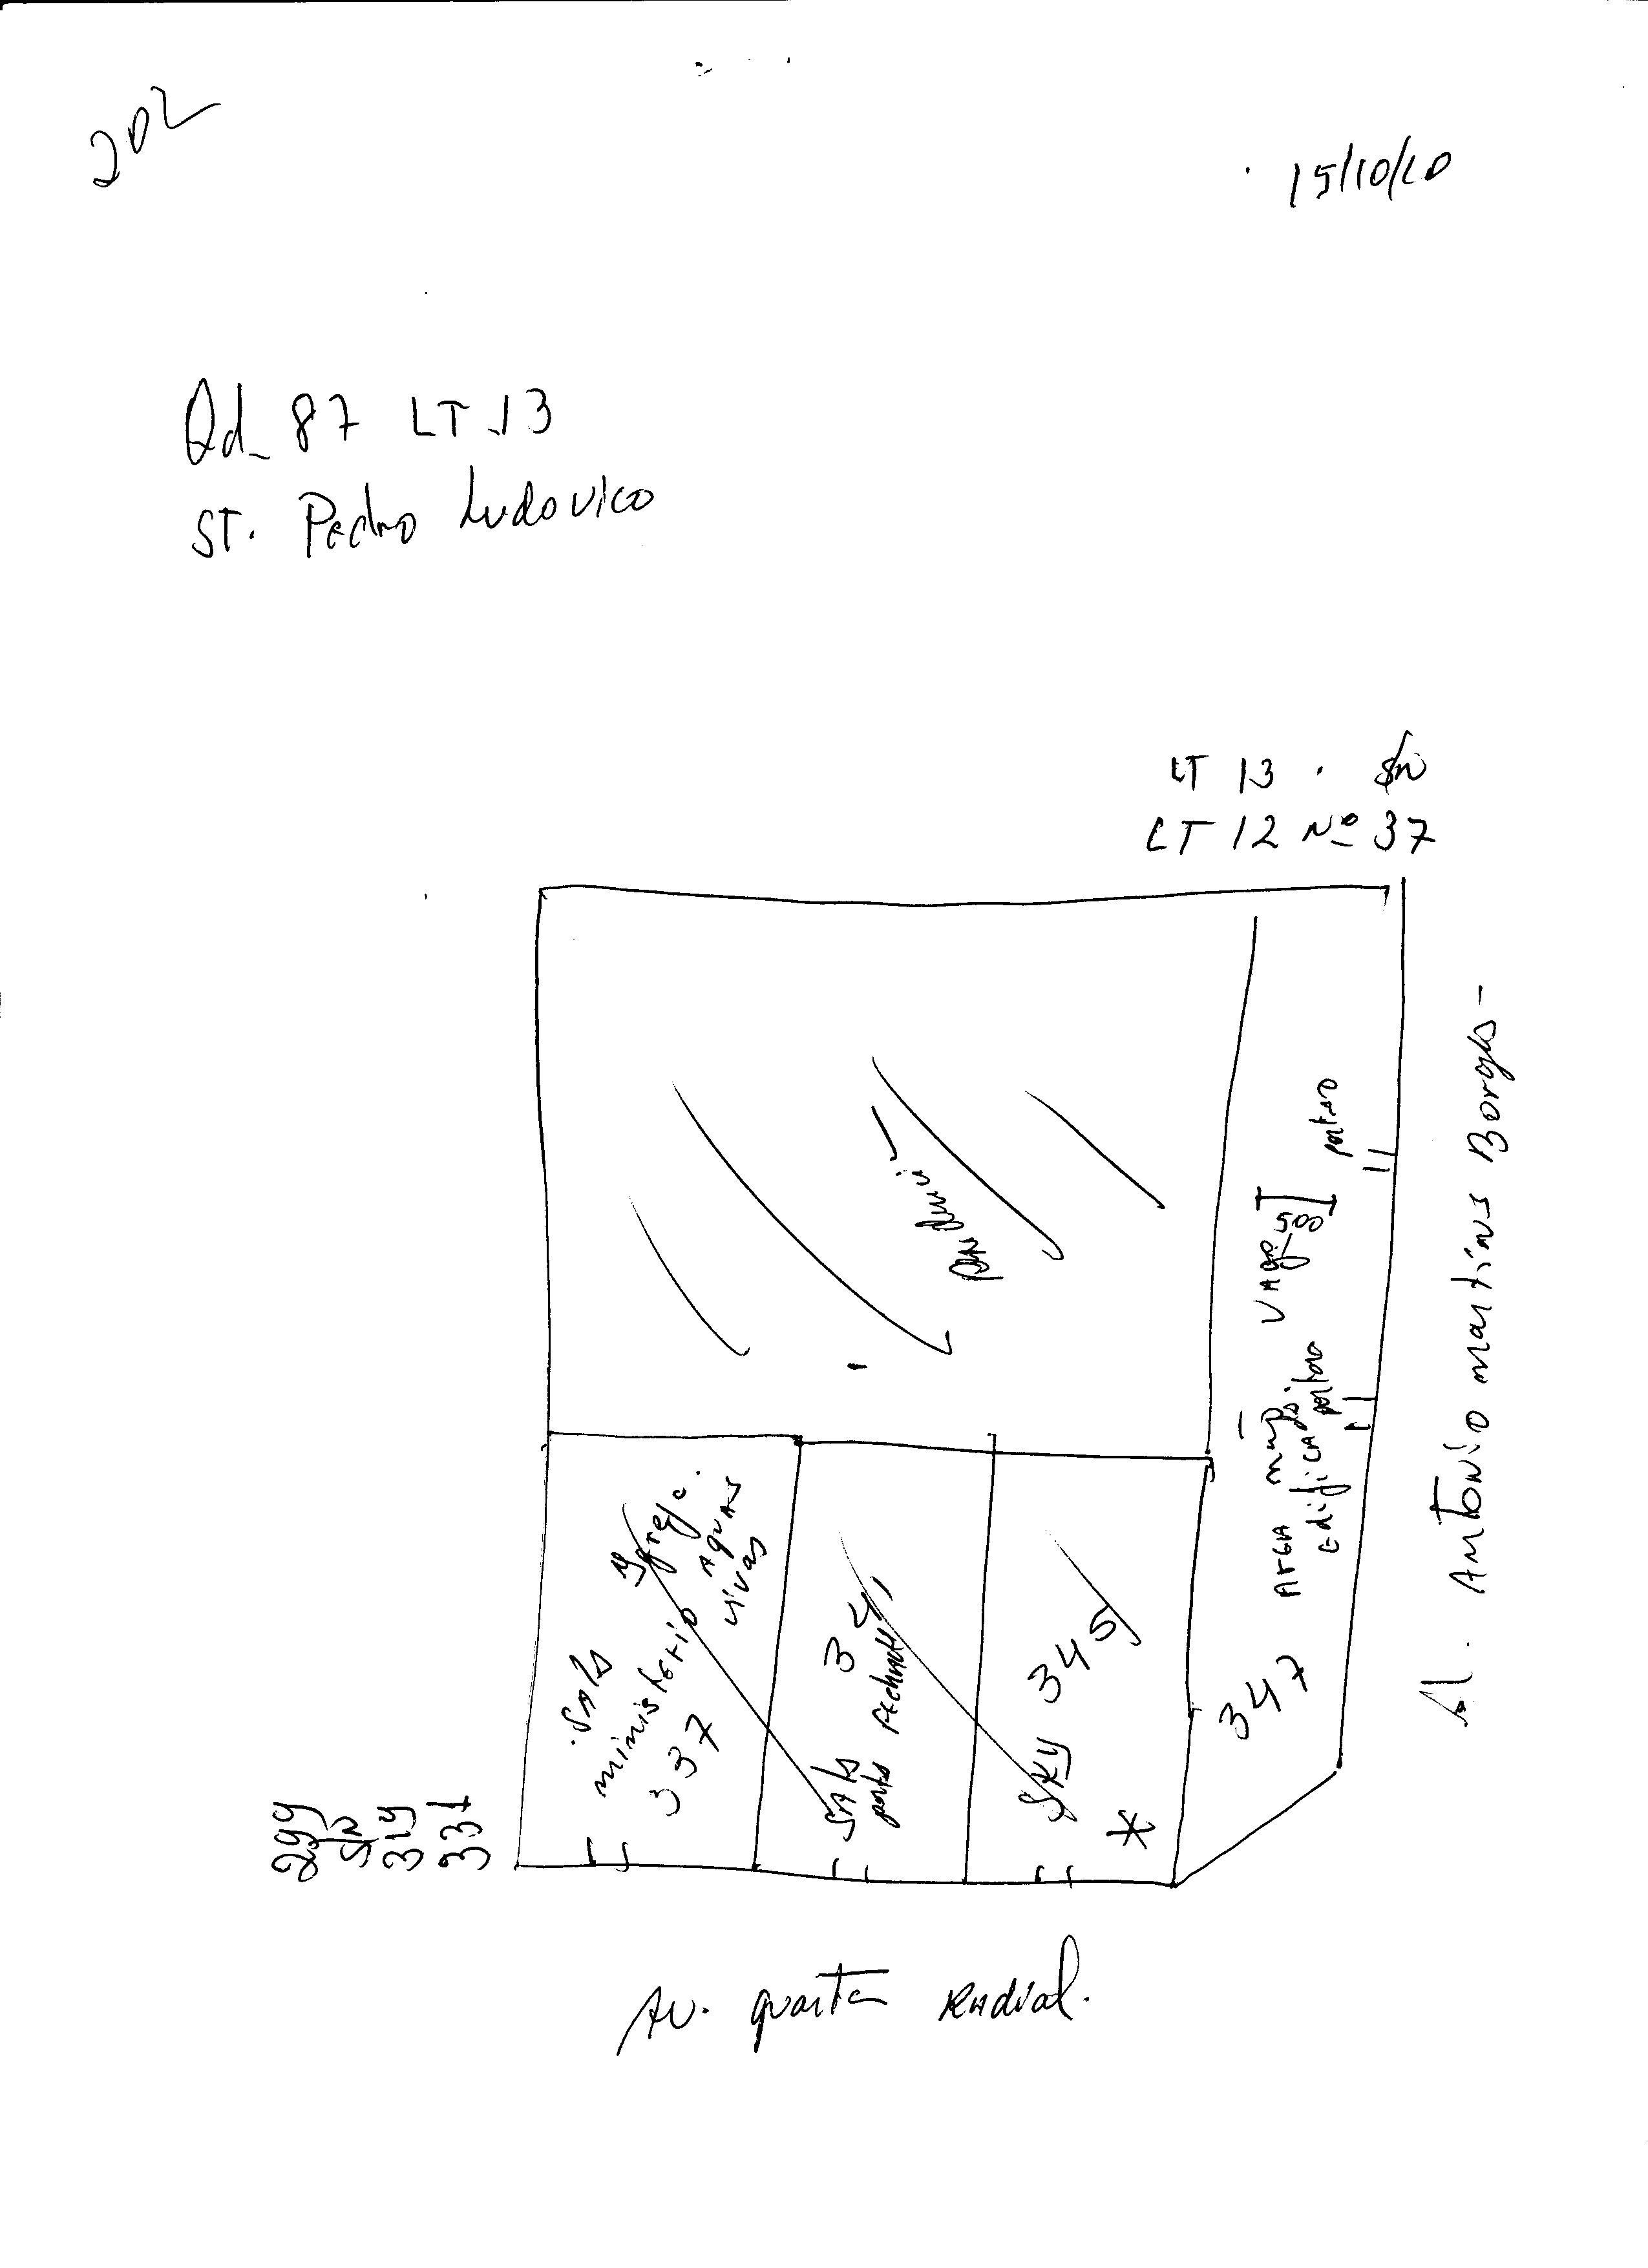 202
15/10/20
Qd_ 87 LT 13
ST. Pedro Ludovico
LT 13 . SN
LT 12 Nº 37
portão
VAGO
500
não
Edificada
AreA
347
Al. Antonio martins Borges -
Ygreja
Aguas
vivas
Sala
ministerio
337
341
Sala
porta fechada
SKY 345
*
299
SN
319
331
AV. quarta Radial.